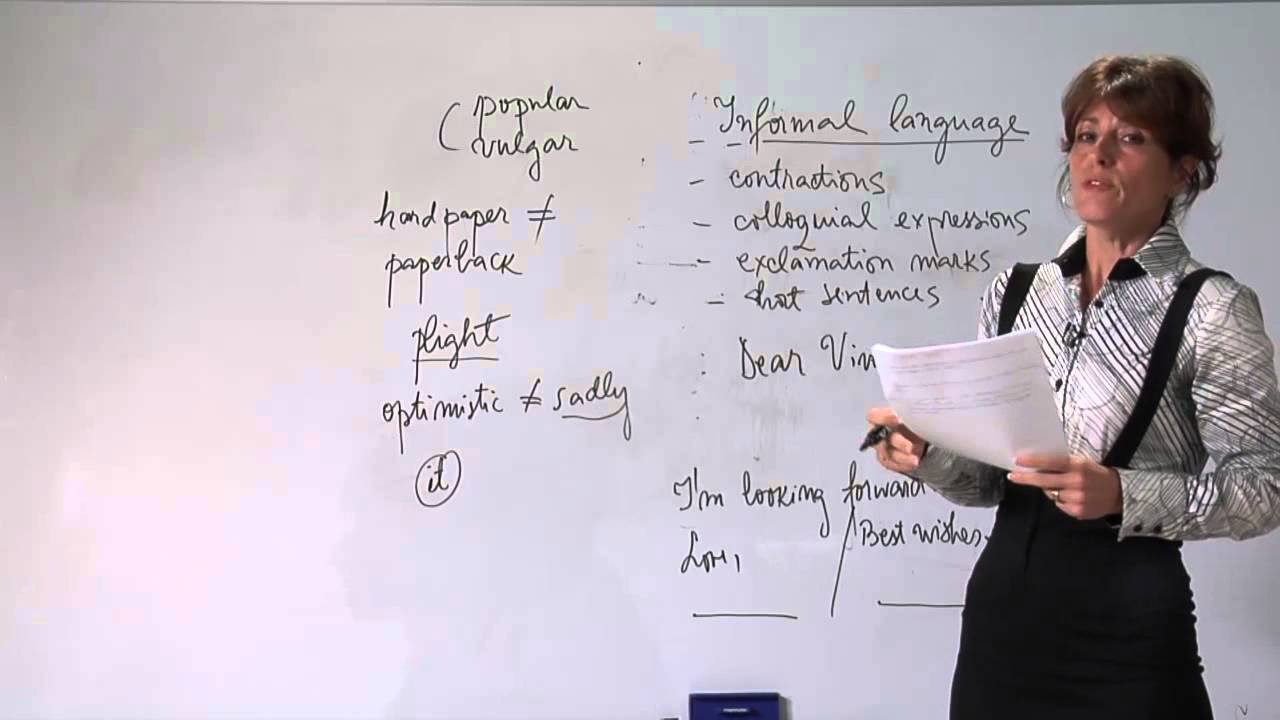 ( popular
vulgar
handpaper ≠
paperback
plight
optimistic ≠ sadly
it
- Informal language
- contractions
- colloquial expressions
- exclamation marks
- shot sentences
: Dear Vin
I'm looking forward
Love, / Best wishes.